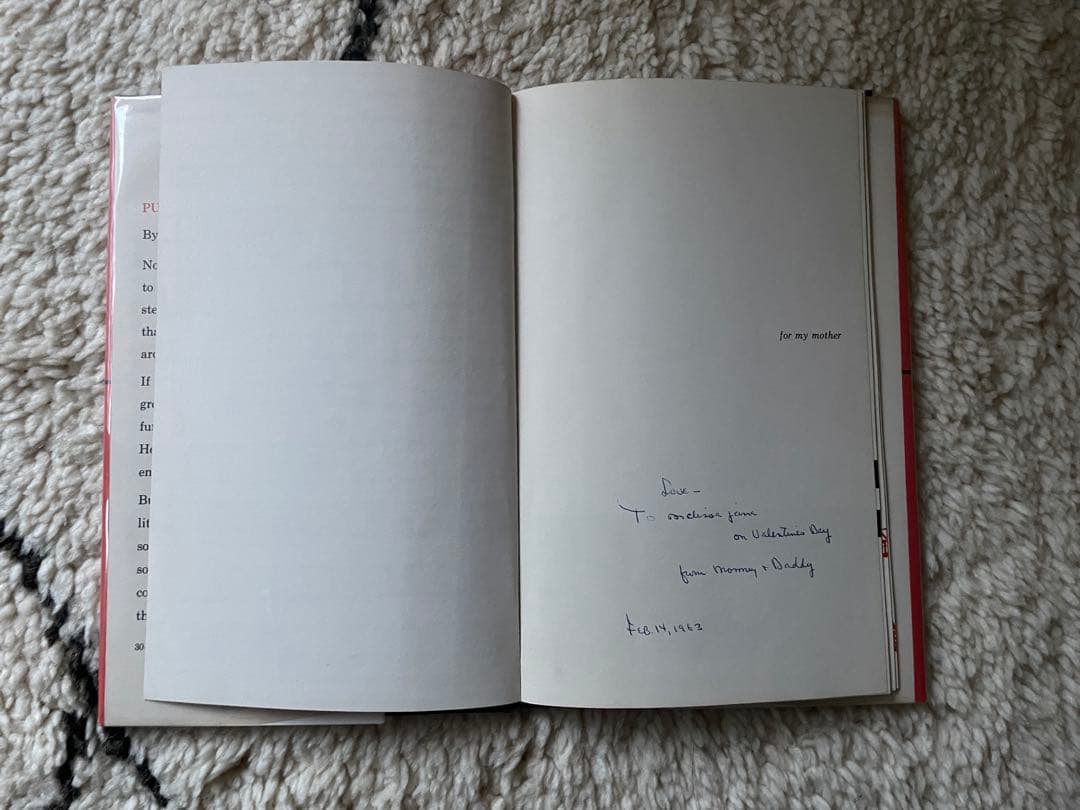 PU
By
No
to
ste
tha
arc
If
gre
fu
He
en
Bu
lit
so
so
co
th
30
for my mother
Love -
To melissa jane
on Valentines Day
from Mommy + Daddy
FEB. 14, 1963